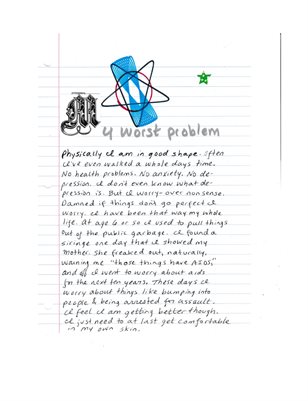 My Worst problem
Physically I am in good shape. Often
I've even walked a whole days time.
No health problems. No anxiety. No de-
pression. I don't even know what de-
pression is. But I worry over nonsense.
Damned if things don't go perfect I
worry. I have been that way my whole
life. At age 6 or so I used to pull things
out of the public garbage. I found a
siringe one day that I showed my
mother. She freaked out, naturally,
warning me "those things have AIDS,"
and I went to worry about aids
for the next ten years. These days I
worry about things like bumping into
people & being arrested for assault.
I feel I am getting better though.
I just need to at last get comfortable
in my own skin.